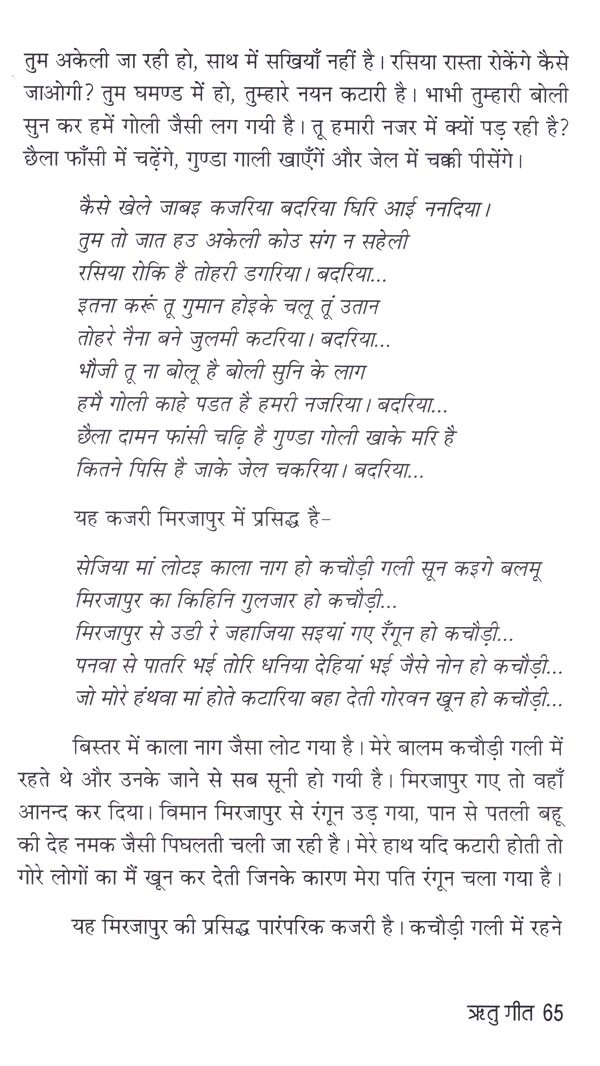 तुम अकेली जा रही हो, साथ में सखियाँ नहीं है। रसिया रास्ता रोकेंगे कैसे
जाओगी? तुम घमण्ड में हो, तुम्हारे नयन कटारी है। भाभी तुम्हारी बोली
सुन कर हमें गोली जैसी लग गयी है। तू हमारी नजर में क्यों पड़ रही है?
छैला फाँसी में चढ़ेंगे, गुण्डा गाली खाएँगें और जेल में चक्की पीसेंगे।
कैसे खेले जाबइ कजरिया बदरिया घिरि आई ननदिया।
तुम तो जात हउ अकेली कोउ संग न सहेली
रसिया रोकि है तोहरी डगरिया। बदरिया...
इतना करूं तू गुमान होइके चलू तूं उतान
तोहरे नैना बने जुलमी कटरिया। बदरिया...
भौजी तू ना बोलू है बोली सुनि के लाग
हमै गोली काहे पडत है हमरी नजरिया। बदरिया...
छैला दामन फांसी चढ़ि है गुण्डा गोली खाके मरि है
कितने पिसि है जाके जेल चकरिया। बदरिया...
यह कजरी मिरजापुर में प्रसिद्ध है-
सेजिया मां लोटइ काला नाग हो कचौड़ी गली सून कइगे बलमू
मिरजापुर का किहिनि गुलजार हो कचौड़ी...
मिरजापुर से उडी रे जहाजिया सइयां गए रँगून हो कचौड़ी...
पनवा से पातरि भई तोरि धनिया देहियां भई जैसे नोन हो कचौड़ी...
जो मोरे हंथवा मां होते कटारिया बहा देती गोरवन खून हो कचौड़ी...
बिस्तर में काला नाग जैसा लोट गया है। मेरे बालम कचौड़ी गली में
रहते थे और उनके जाने से सब सूनी हो गयी है। मिरजापुर गए तो वहाँ
आनन्द कर दिया। विमान मिरजापुर से रंगून उड़ गया, पान से पतली बहू
की देह नमक जैसी पिघलती चली जा रही है। मेरे हाथ यदि कटारी होती तो
गोरे लोगों का मैं खून कर देती जिनके कारण मेरा पति रंगून चला गया है।
यह मिरजापुर की प्रसिद्ध पारंपरिक कजरी है। कचौड़ी गली में रहने
ऋतु गीत 65